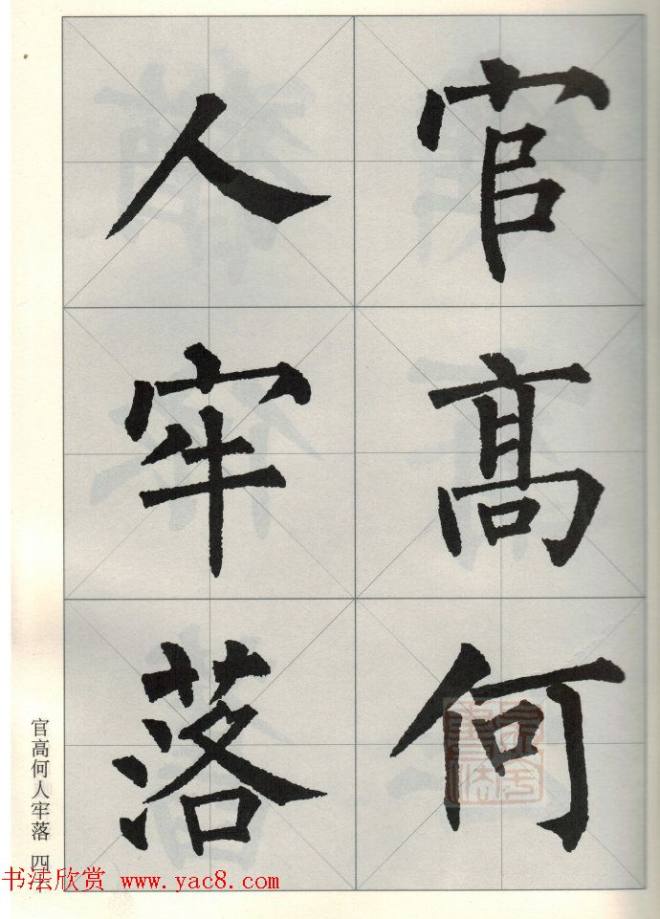 官高何
人牢落
官高何人牢落 四
书法欣赏 www.yac8.com